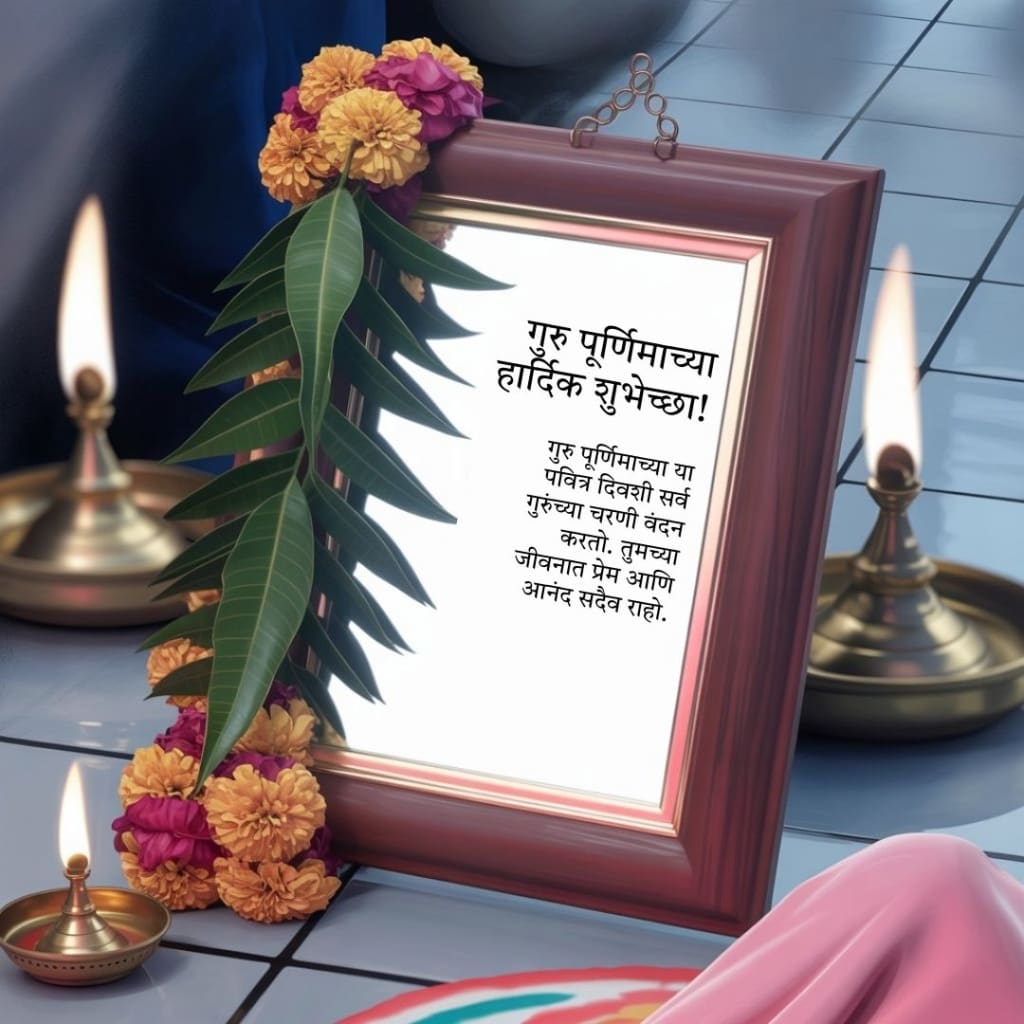 गुरु पूर्णिमाच्या
हार्दिक शुभेच्छा!
गुरु पूर्णिमाच्या या
पवित्र दिवशी सर्व
गुरुंच्या चरणी वंदन
करतो. तुमच्या
जीवनात प्रेम आणि
आनंद सदैव राहो.